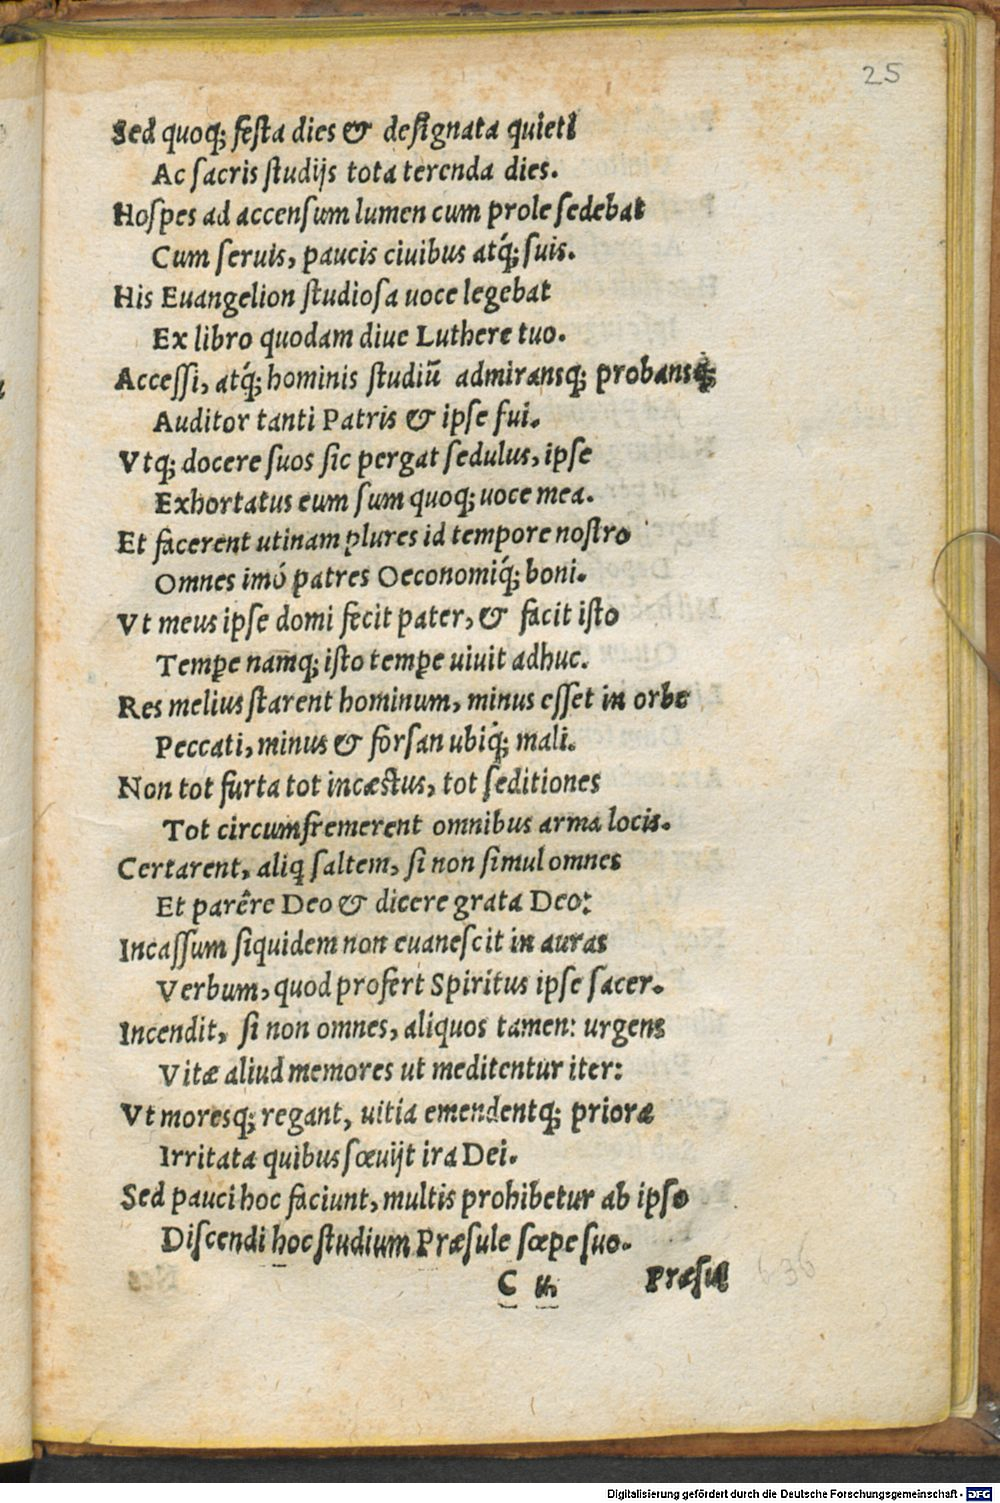 25
Sed quoq; festa dies & designata quieti
Ac sacris studijs tota terenda dies.
Hospes ad accensum lumen cum prole sedebat
Cum seruis, paucis ciuibus atq́; suis.
His Euangelion studiosa uoce legebat
Ex libro quodam diue Luthere tuo.
Accessi, atq́; hominis studiū admiransq; probansq́;
Auditor tanti Patris & ipse fui.
Vtq; docere suos sic pergat sedulus, ipse
Exhortatus eum sum quoq; uoce mea.
Et facerent utinam plures id tempore nostro
Omnes imó patres Oeconomiq́; boni.
Vt meus ipse domi fecit pater, & facit isto
Temꝑe namq; isto temꝑe uiuit adhuc.
Res melius starent hominum, minus esset in orbe
Peccati, minus & forsan ubiq́; mali.
Non tot furta tot incæstus, tot seditiones
Tot circumfremerent omnibus arma locis.
Certarent, aliq saltem, si non simul omnes
Et parêre Deo & dicere grata Deo:
Incassum siquidem non euanescit in auras
Verbum, quod profert Spiritus ipse sacer.
Incendit, si non omnes, aliquos tamen: urgens
Vitæ aliud memores ut meditentur iter:
Vt moresq; regant, uitia emendentq; priora
Irritata quibus sœuijt ira Dei.
Sed pauci hoc faciunt, multis prohibetur ab ipso
Discendi hoc studium Præsule sœpe suo.
C
Præsul
636
Digitalisierung gefördert durch die Deutsche Forschungsgemeinschaft - DFG